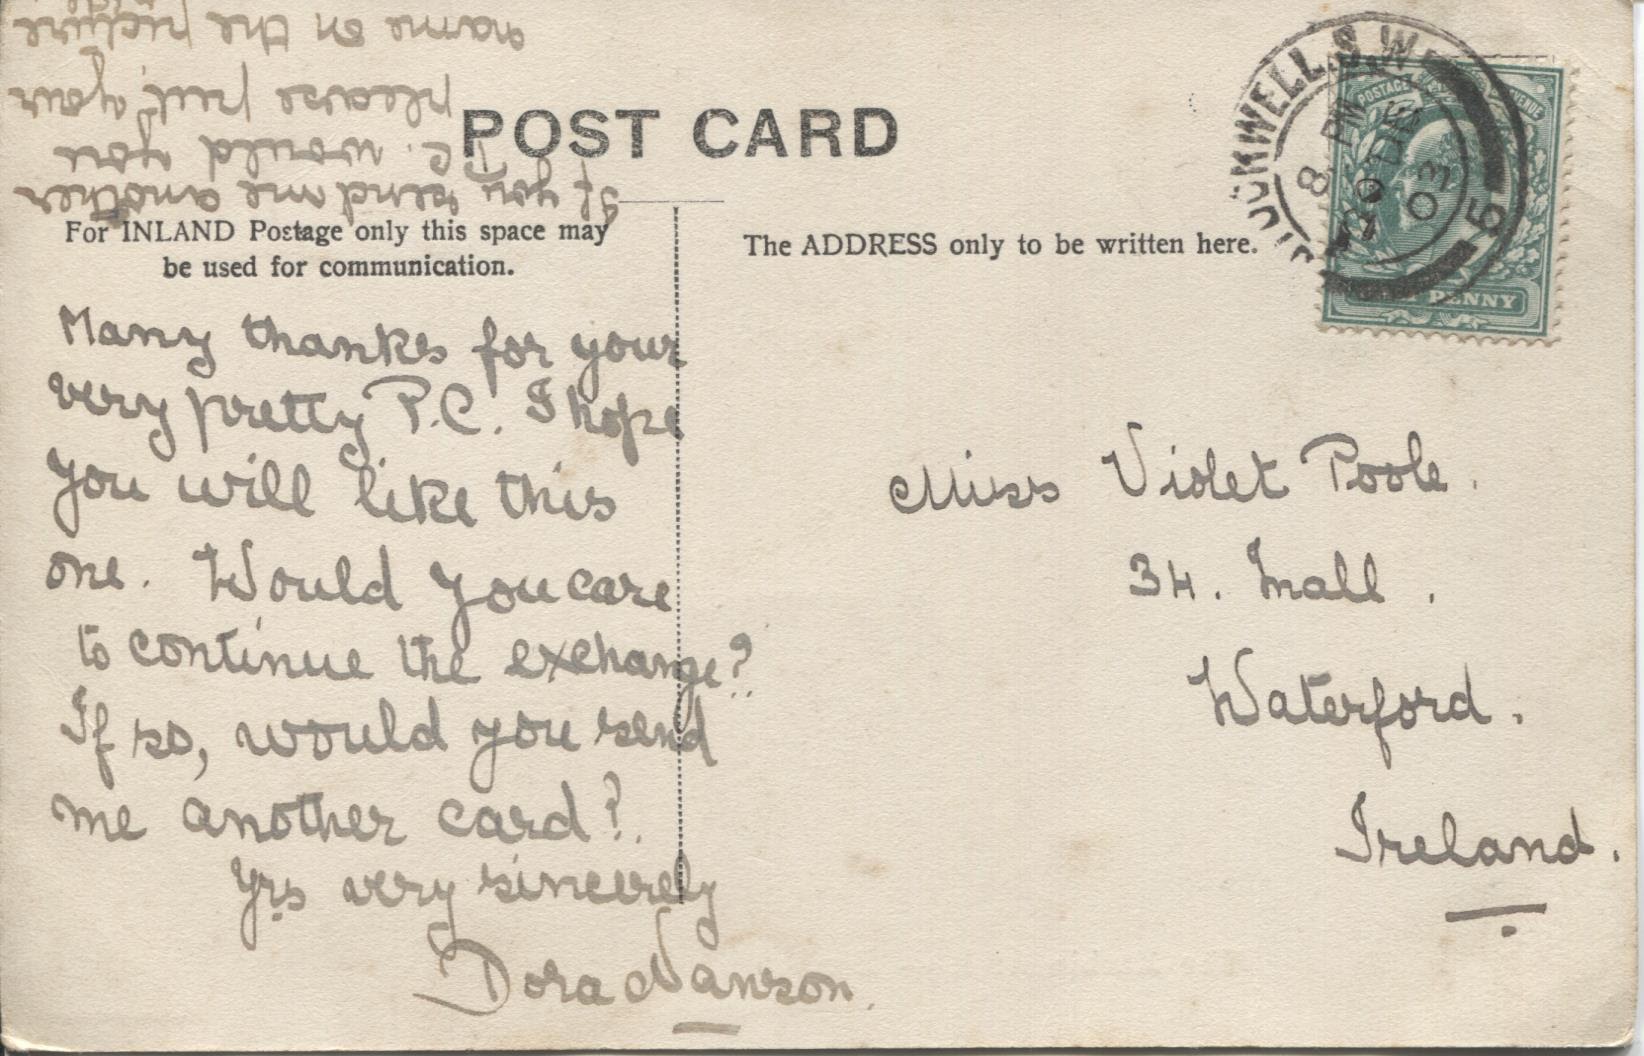 POST CARD
For INLAND Postage only this space may
be used for communication.
The ADDRESS only to be written here.
Many thanks for your
very pretty P.C. I hope
you will like this
one. Would you care
to continue the exchange?
If so, would you send
me another card?
Yrs very sincerely
Dora
If you send me another
P.C. would you
please put your
name on the picture
side
Miss Violet Poole.
34. Mall.
Waterford.
Ireland.
8 PM
DE
03
POSTAGE
PENNY
5